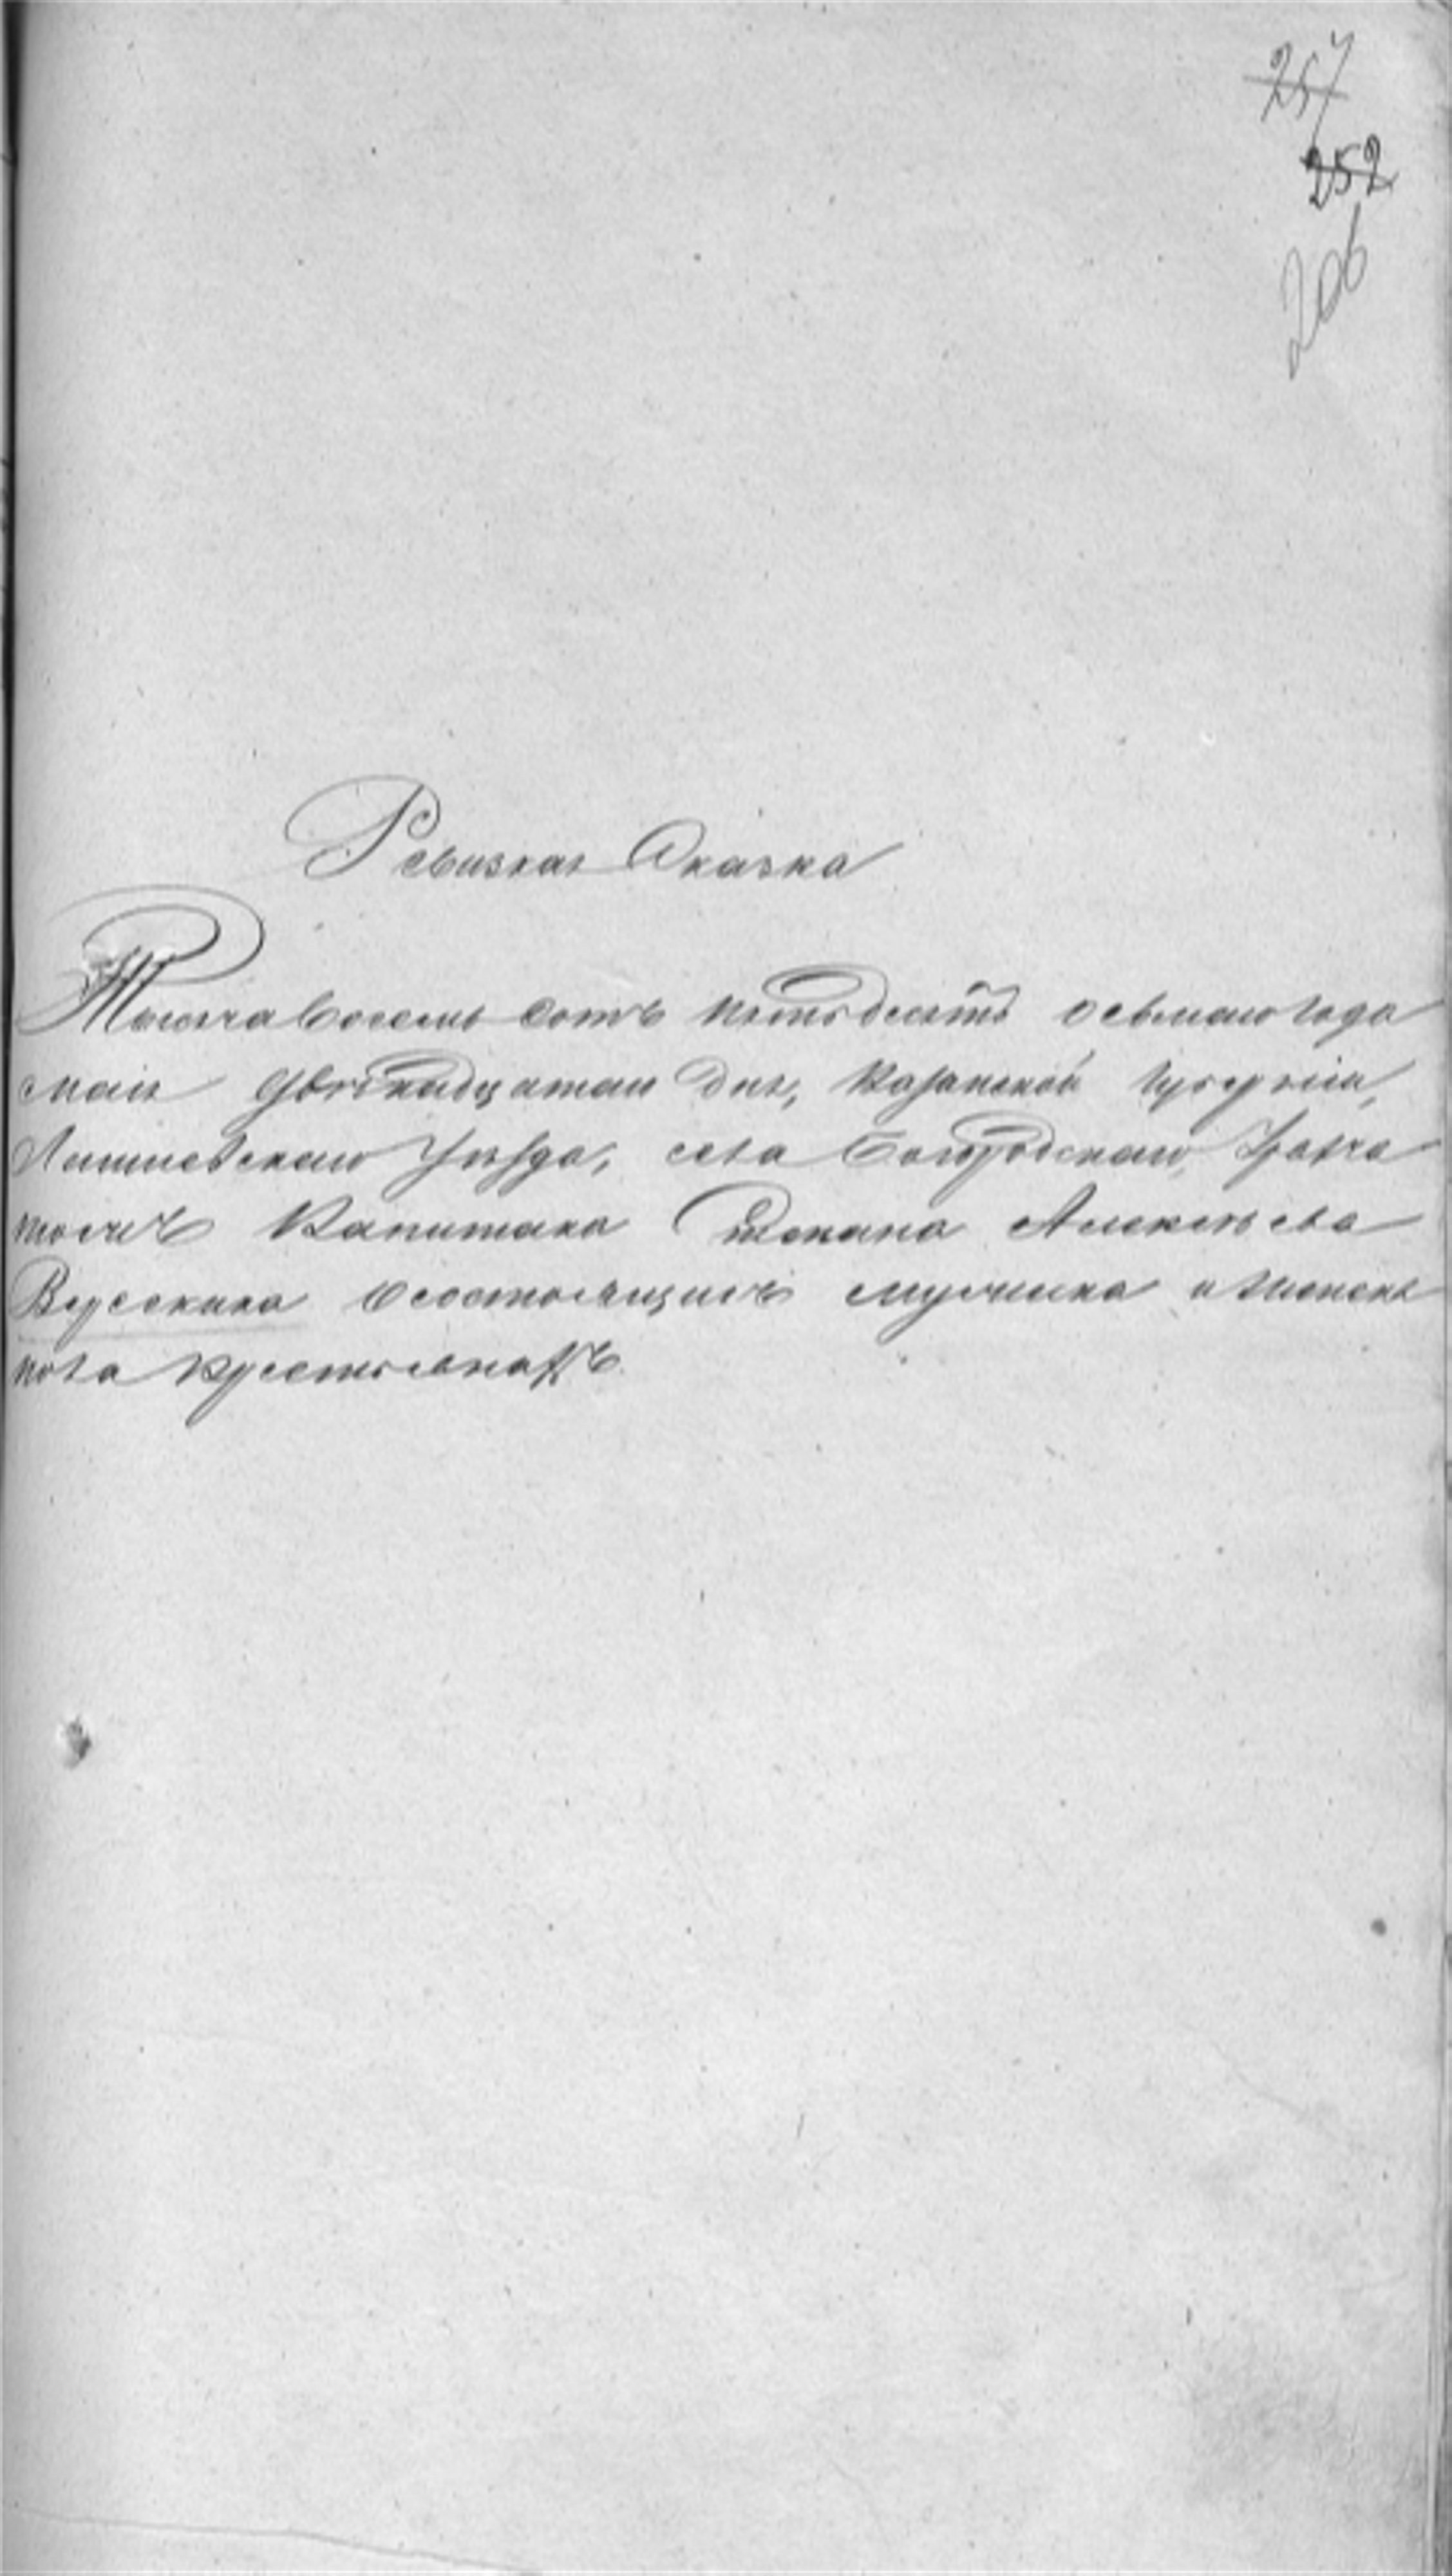 257
252
206
Ревизкая Сказка
Тысяча восемь сотъ пятьдесятъ осьмаго года
маія двенадцатаго дня, Казанской губерніи,
Лаишевскаго уѣзда, села Богородскаго,
Капитана Степана Алексѣева
о состоящихъ мужеска и женска
пола крестьянахъ